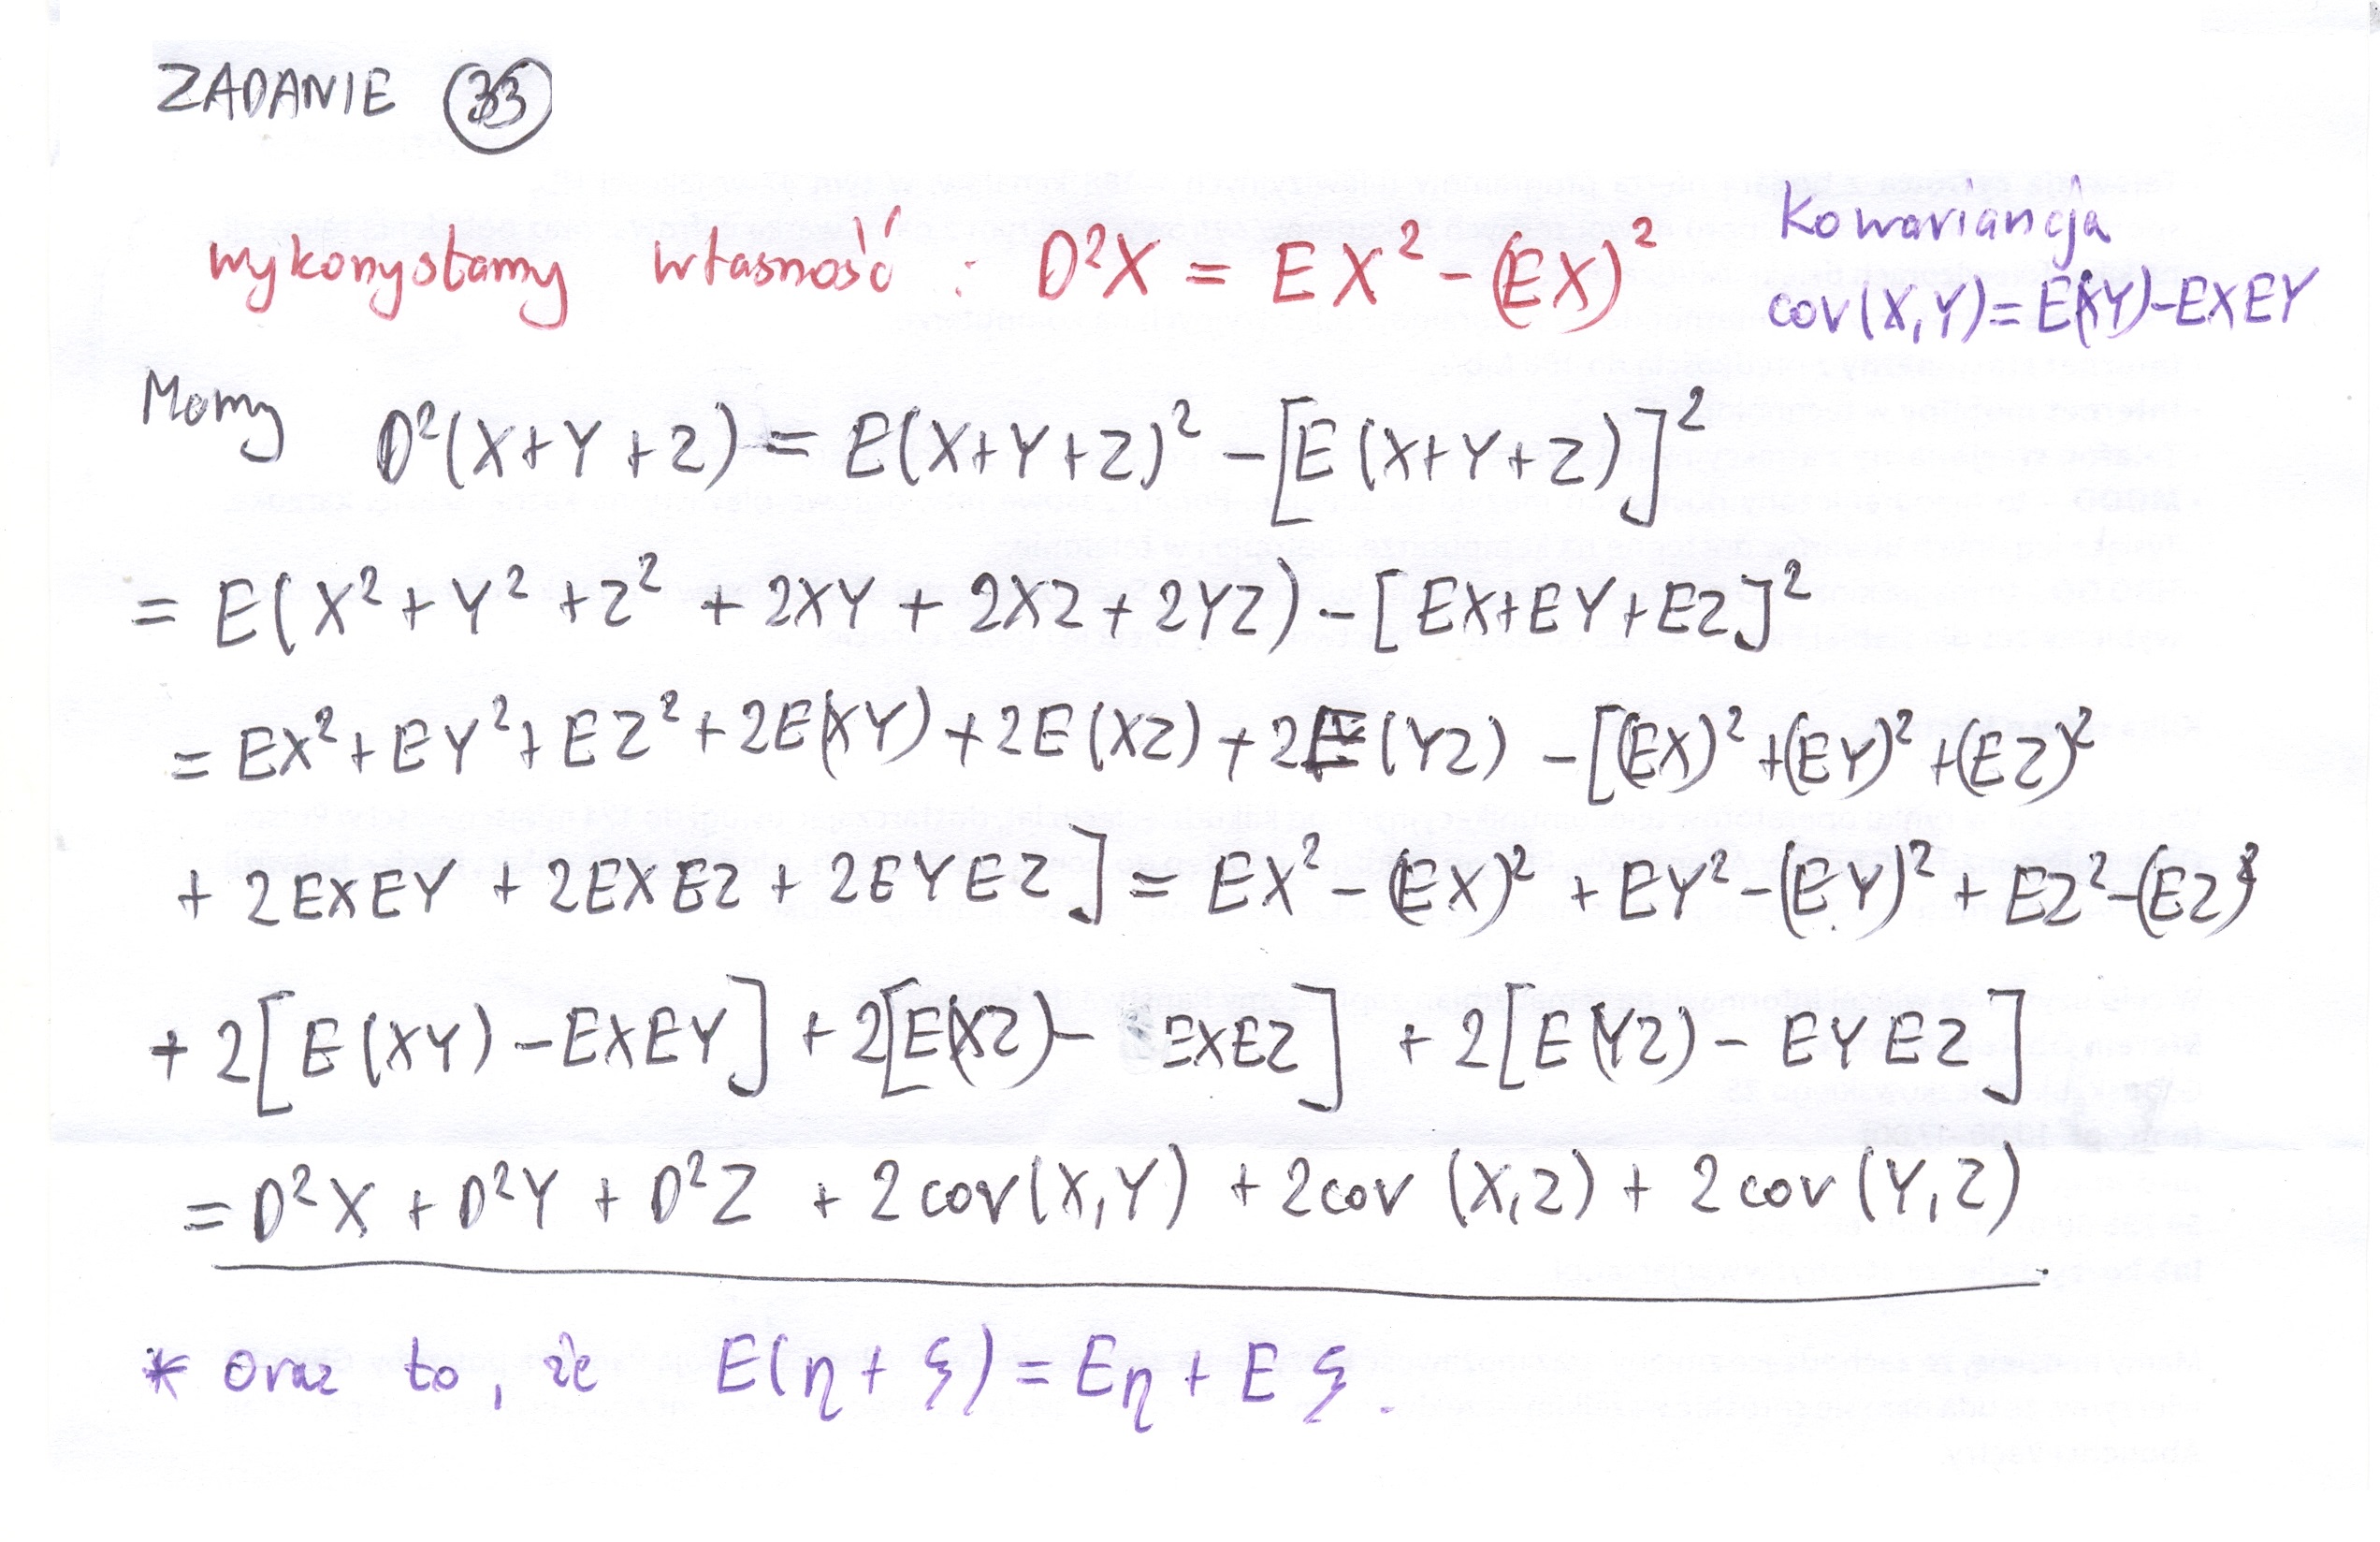 ZADANIE 33
wykorzystamy własność : D²X = EX² - (EX)²
Kowariancja
cov(X,Y)=E(XY)-EXEY
Mamy D²(X+Y+Z) = E(X+Y+Z)² - [E(X+Y+Z)]²
= E(X²+Y²+Z² + 2XY + 2XZ + 2YZ) - [EX+EY+EZ]²
= EX²+EY²+EZ²+2E(XY)+2E(XZ)+2E(YZ) -[(EX)²+(EY)²+(EZ)²
+ 2EXEY + 2EXEZ + 2EYEZ] = EX² - (EX)² + EY² - (EY)² + EZ² - (EZ)²
+ 2[E(XY) - EXEY] + 2[E(XZ) - EXEZ] + 2[E(YZ) - EYEZ]
= D²X + D²Y + D²Z + 2cov(X,Y) + 2cov(X,Z) + 2cov(Y,Z)
* oraz to, że E(η + ξ) = Eη + Eξ.